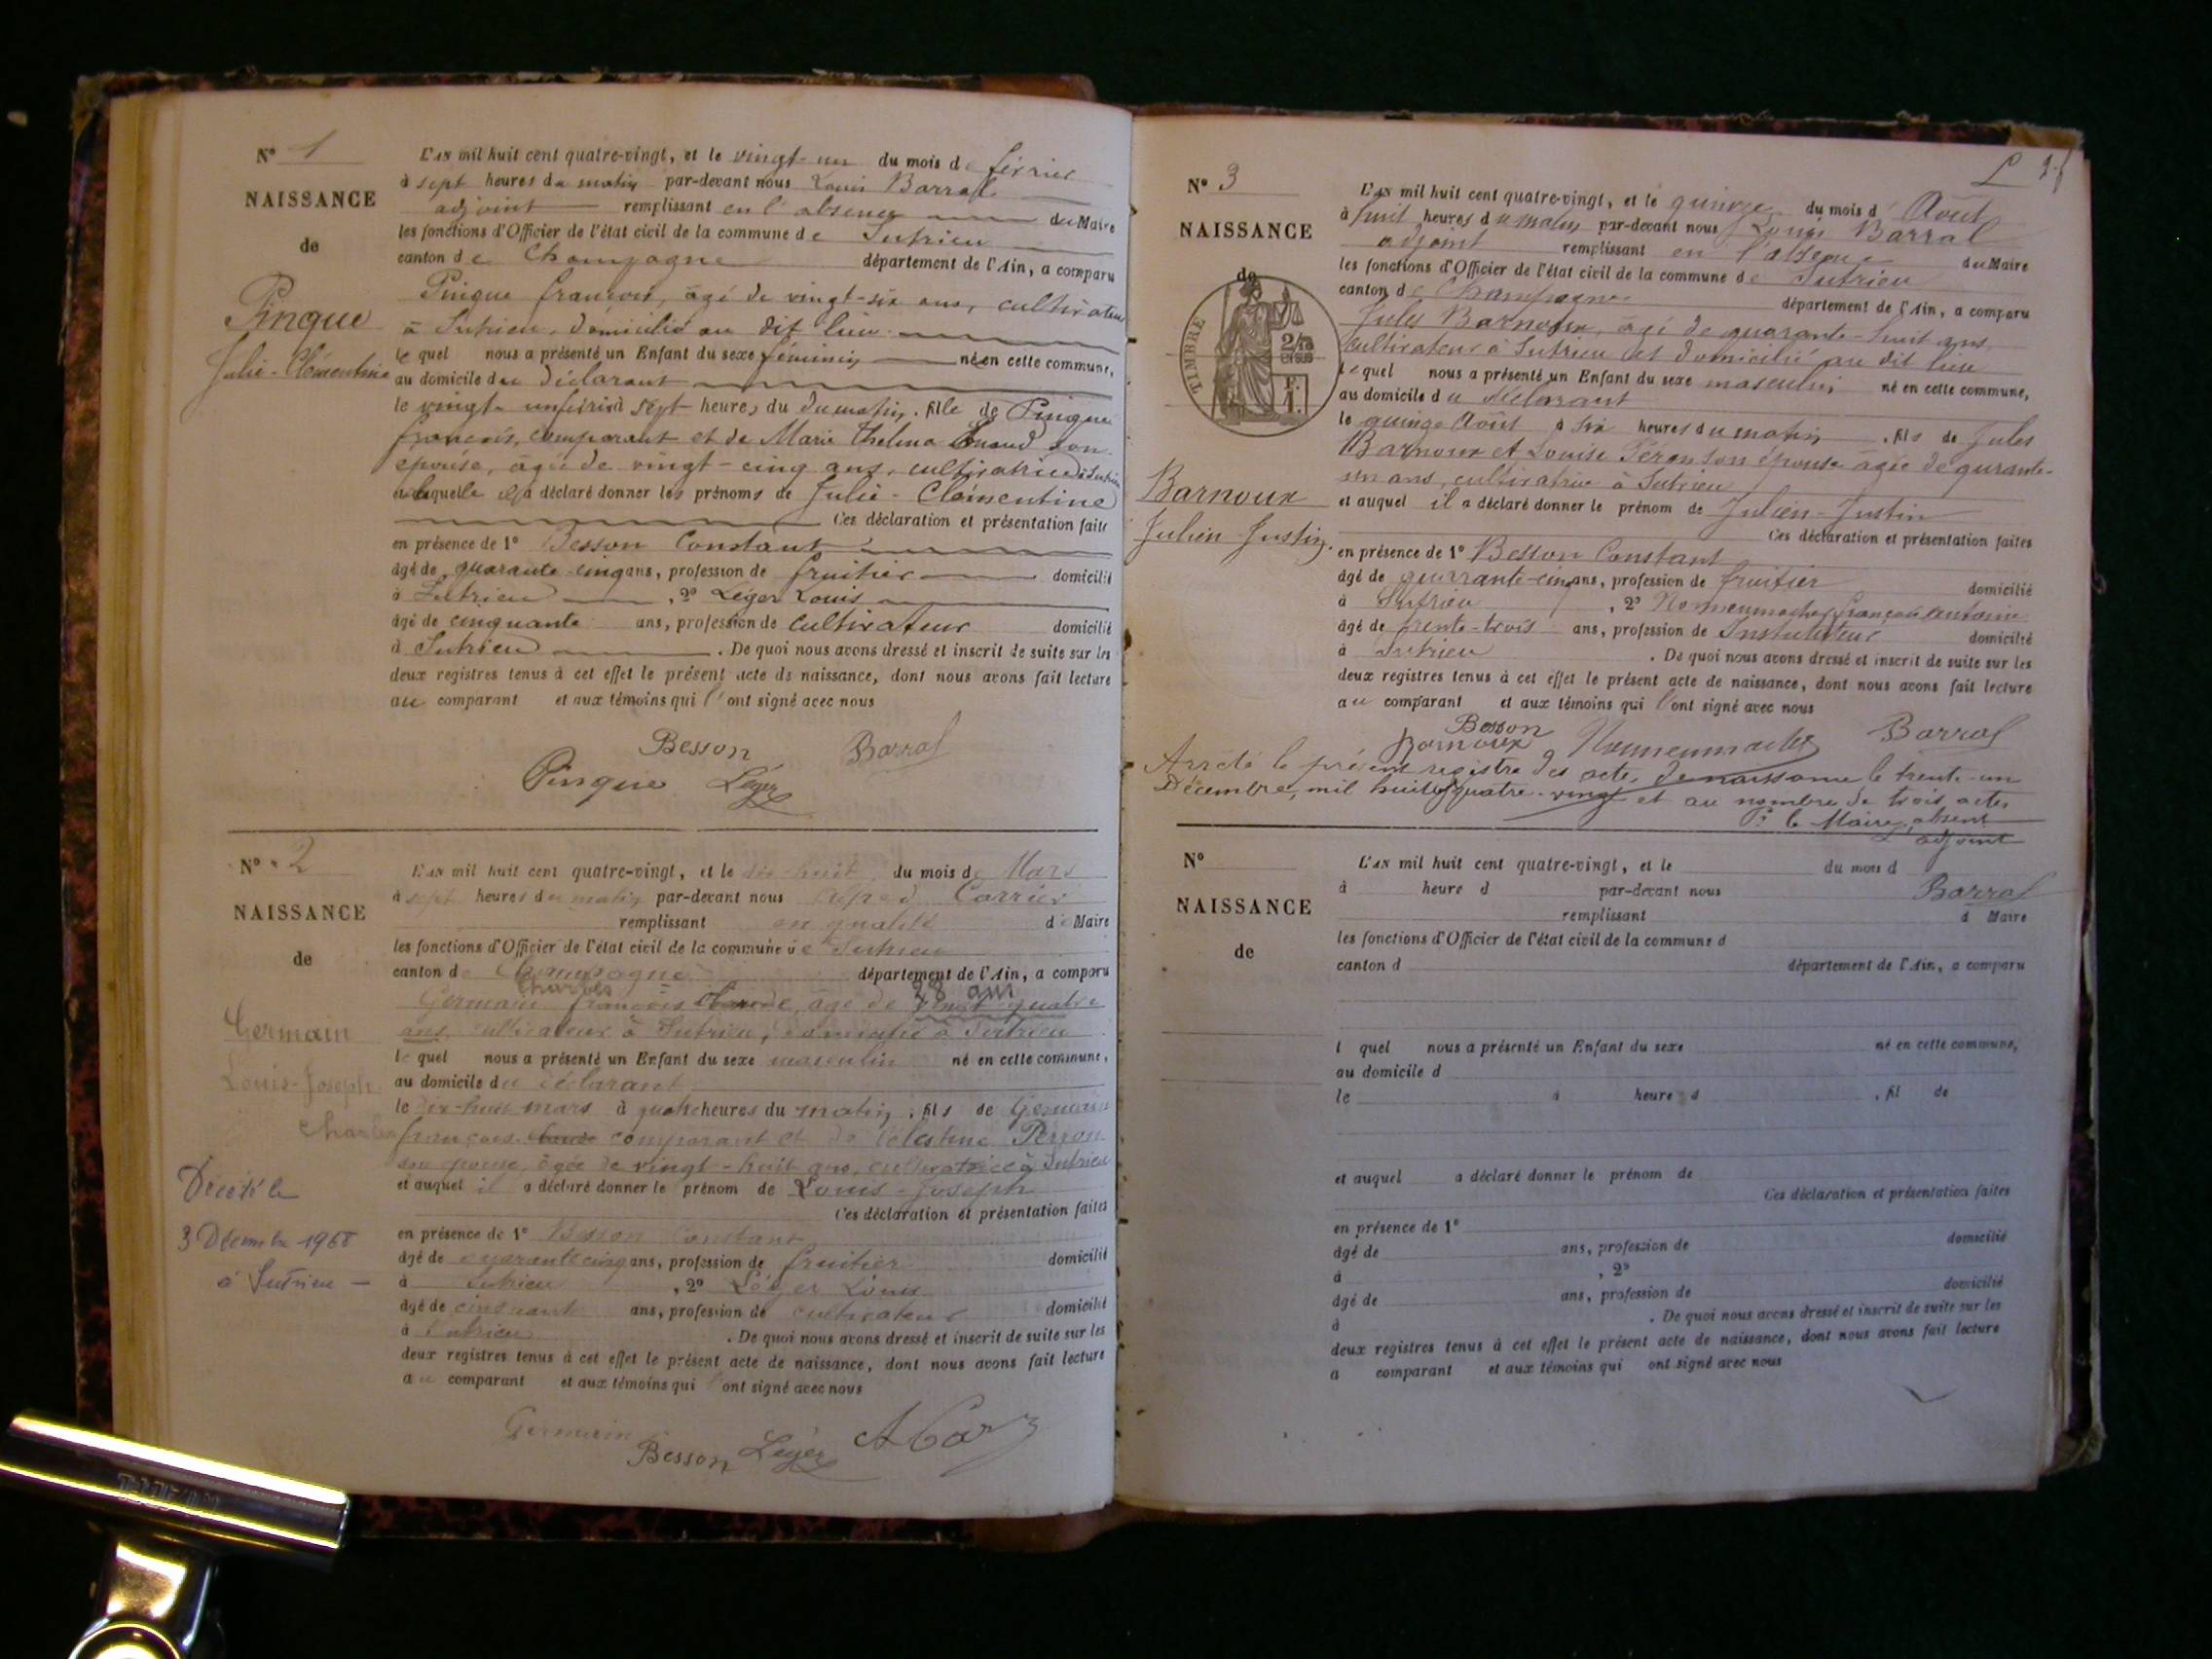 N° 1
NAISSANCE
de
Pinque
Julie-Clémentine
L'AN mil huit cent quatre-vingt, et le vingt-un du mois de février
à sept heures du matin par-devant nous Louis Barral
adjoint remplissant en l'absence du Maire
les fonctions d'Officier de l'état civil de la commune de Sutrieu
canton de Champagne département de l'Ain, a comparu
Pinque françois, âgé de vingt-six ans, cultivateur
à Sutrieu, domicilié au dit lieu
lequel nous a présenté un Enfant du sexe féminin né en cette commune,
au domicile du déclarant
le vingt-un à sept heures du du matin, fille de Pinque
françois, comparant et de Marie Thelma son
épouse, âgée de vingt-cinq ans, cultivatrice à Sutrieu
a laquelle il a déclaré donner les prénoms de Julie-Clémentine
Ces déclaration et présentation faite
en présence de 1° Besson Constant
âgé de quarante-cinq ans, profession de fruitier domicilié
à Sutrieu, 2° Léger Louis
âgé de cinquante ans, profession de cultivateur domicilié
à Sutrieu. De quoi nous avons dressé et inscrit de suite sur les
deux registres tenus à cet effet le présent acte de naissance, dont nous avons fait lecture
au comparant et aux témoins qui l'ont signé avec nous
Besson Barral
Pinque Léger
N° 2
NAISSANCE
de
Germain
Louis-Joseph
Charles
Décédé le
3 Décembre 1968
à Sutrieu —
L'AN mil huit cent quatre-vingt, et le dix-huit du mois de Mars
à sept heures du matin par-devant nous Alfred Carrier
remplissant en qualité de Maire
les fonctions d'Officier de l'état civil de la commune de Sutrieu
canton de Champagne département de l'Ain, a comparu
Charles 28 ans
Germain françois Claude, âgé de vingt-quatre
ans, cultivateur à Sutrieu, domicilié à Sutrieu
lequel nous a présenté un Enfant du sexe masculin né en cette commune,
au domicile du déclarant
le dix-huit mars à quatre heures du matin, fils de Germain
françois Claude comparant et de Célestine Perron
son épouse, âgée de vingt-huit ans, cultivatrice à Sutrieu
et auquel il a déclaré donner le prénom de Louis-Joseph
Ces déclaration et présentation faites
en présence de 1° Besson Constant
âgé de quarante cinq ans, profession de fruitier domicilié
à Sutrieu, 2° Léger Louis
âgé de cinquant ans, profession de cultivateur domicilié
à Sutrieu. De quoi nous avons dressé et inscrit de suite sur les
deux registres tenus à cet effet le présent acte de naissance, dont nous avons fait lecture
au comparant et aux témoins qui l'ont signé avec nous
Germain
Besson Léger ACar
N° 3
NAISSANCE
de
TIMBRE
2/10
EN SUS
F.
1.
Barnoux
Julien Justin.
L'AN mil huit cent quatre-vingt, et le quinze du mois d'Août
à huit heures du matin par-devant nous Louis Barral
adjoint remplissant en l'absence du Maire
les fonctions d'Officier de l'état civil de la commune de Sutrieu
canton de Champagne département de l'Ain, a comparu
Jules Barnoux, âgé de quarante-huit ans
cultivateur à Sutrieu et domicilié au dit lieu
lequel nous a présenté un Enfant du sexe masculin né en cette commune,
au domicile du déclarant
le quinze Août à six heures du matin, fils de Jules
Barnoux et Louise Péron son épouse âgée de qurante-
un ans, cultivatrice à Sutrieu
et auquel il a déclaré donner le prénom de Julien-Justin
Ces déclaration et présentation faites
en présence de 1° Besson Constant
âgé de quarante-cinq ans, profession de fruitier domicilié
à Sutrieu, 2° Nonnenmacher françois antoine
âgé de trente-trois ans, profession de Instituteur domicilié
à Sutrieu. De quoi nous avons dressé et inscrit de suite sur les
deux registres tenus à cet effet le présent acte de naissance, dont nous avons fait lecture
au comparant et aux témoins qui l'ont signé avec nous
Besson
Barnoux Nonnenmacher Barral
Arrêté le présent registre des actes de naissance le trente-un
Décembre, mil huit quatre-vingt et au nombre de trois actes
Pr le Maire absent
L'adjoint
Barral
N°
NAISSANCE
de
L'AN mil huit cent quatre-vingt, et le du mois d
à heure d par-devant nous
remplissant d Maire
les fonctions d'Officier de l'état civil de la commune d
canton d département de l'Ain, a comparu
l quel nous a présenté un Enfant du sexe né en cette commune,
au domicile d
le à heure d , fil de
et auquel a déclaré donner le prénom de
Ces déclaration et présentation faites
en présence de 1°
âgé de ans, profession de domicilié
à , 2°
âgé de ans, profession de domicilié
à . De quoi nous avons dressé et inscrit de suite sur les
deux registres tenus à cet effet le présent acte de naissance, dont nous avons fait lecture
a comparant et aux témoins qui ont signé avec nous